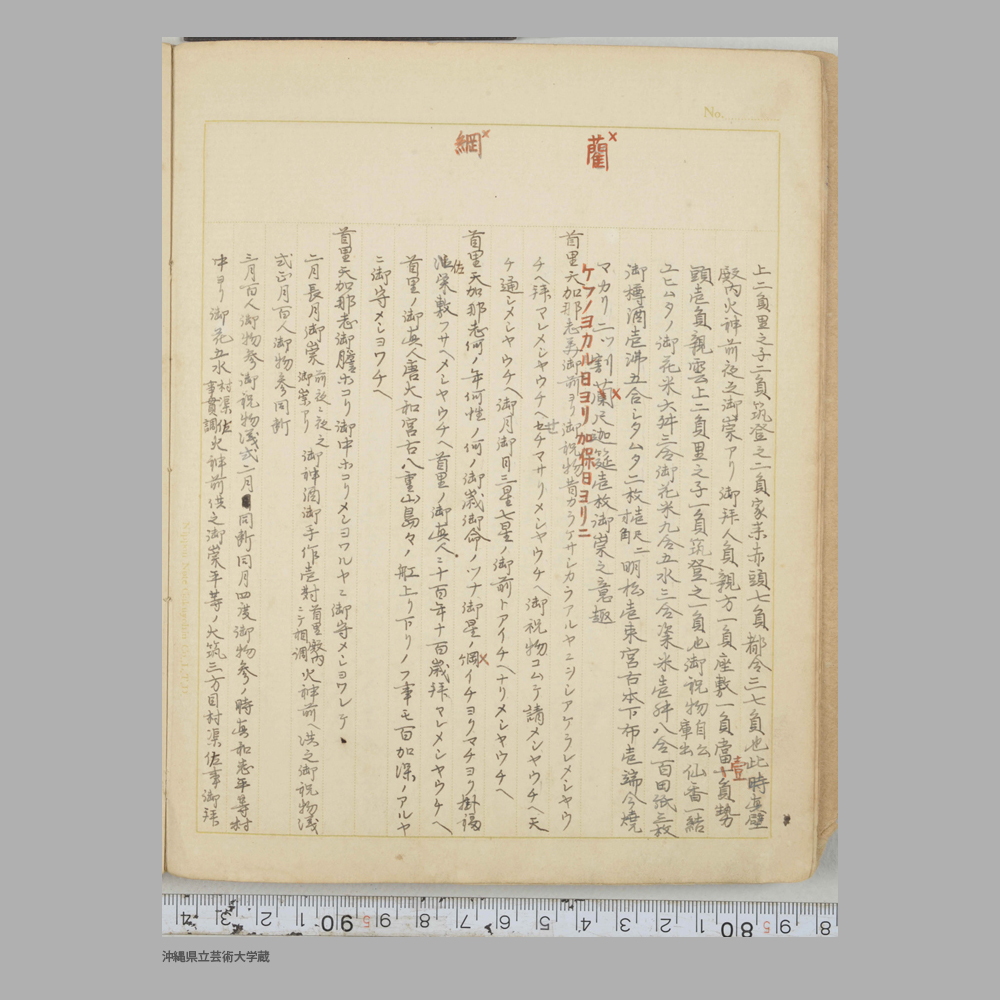 No.
藺×
綱×
上二負里之子二負筑登之二負家来赤頭七負都合三七負也此時真壁
殿内火神前夜之御崇アリ御拝人負親方一負座敷一負當壹負勢
頭壱負親雲上二負里之子一負筑登之一負也御祝物自公庫出仙香一結
ユヒムタノ御花米六舛三合御花米九合五水三合粢米壱舛八合百田紙三枚
御樽酒壱沸五合シタムタ二枚壱尺二寸角明松壱束宮古本下布壱端今焼
マカリ二ツ割藺尺迦筵壱枚御崇之意趣
ケフノヨカル日ヨリ加保日ヨリニ
首里天加那志美御前ヨリ御祝物昔カラケサシカラアルヤニヲシアケラレメシヤウ
チヘ拝マレメシヤウチヘセチマサリメシヤウチヘ御祝物コムテ請メシヤウチヘ天
ケ通シメシヤウチヘ御月御日三星七星ノ御前トアイチヘナリメシヤウチヘ
首里天加那志何ノ年何性ノ何ノ御歳御命ノツナ御星ノ綱イチヨクマチヨク掛福
佐栄敷フサヘメシヤウチヘ首里ノ御真人ニ十百年十百歳拝マレメシヤウチヘ
首里ノ御真人唐大和宮古八重山島々ノ舡上リ下リノフ事モ百加保ノアルヤ
ニ御守メシヨワチヘ
首里天加那志御膽ホコリ御中ホコリメシヨワルヤニ御守メシヨワレテ
二月長月御崇前夜ニ夜之御崇アリ御神酒御手作壱対首里殿内ニテ相調火神前ヘ供之御祝物儀
式正月百人御物参同断
三月百人御物参御祝物儀式二月同断同月四度御物参ノ時真和志平等村
中ヨリ御花五水村渠佐事貫調火神前供之御崇平等ノ大筑三方目村渠佐事御拝
沖縄県立芸術大学蔵